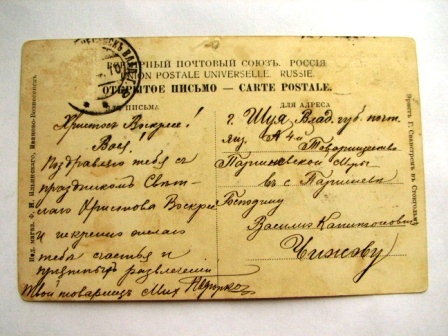 ВСЕМІРНЫЙ ПОЧТОВЫЙ СОЮЗЪ. РОССІЯ.
UNION POSTALE UNIVERSELLE. RUSSIE.
ОТКРЫТОЕ ПИСЬМО — CARTE POSTALE.
ДЛЯ ПИСЬМА
Христосъ Воскресе!
Поздравляю тебя съ
праздникомъ Свѣт-
лаго Христова Воскрес.
и искренно желаю
тебѣ счастья и
развлеченія
Твой товарищъ Мих
ДЛЯ АДРЕСА
г. Шуя Влад. губ. почт.
ящ. № 4й Товарищество
Мры
въ с
Господину
Василию Капитоновичу
Чижову
Изд. магаз. Ильинскаго, Иваново-Вознесенскъ.
въ Стокгольмѣ